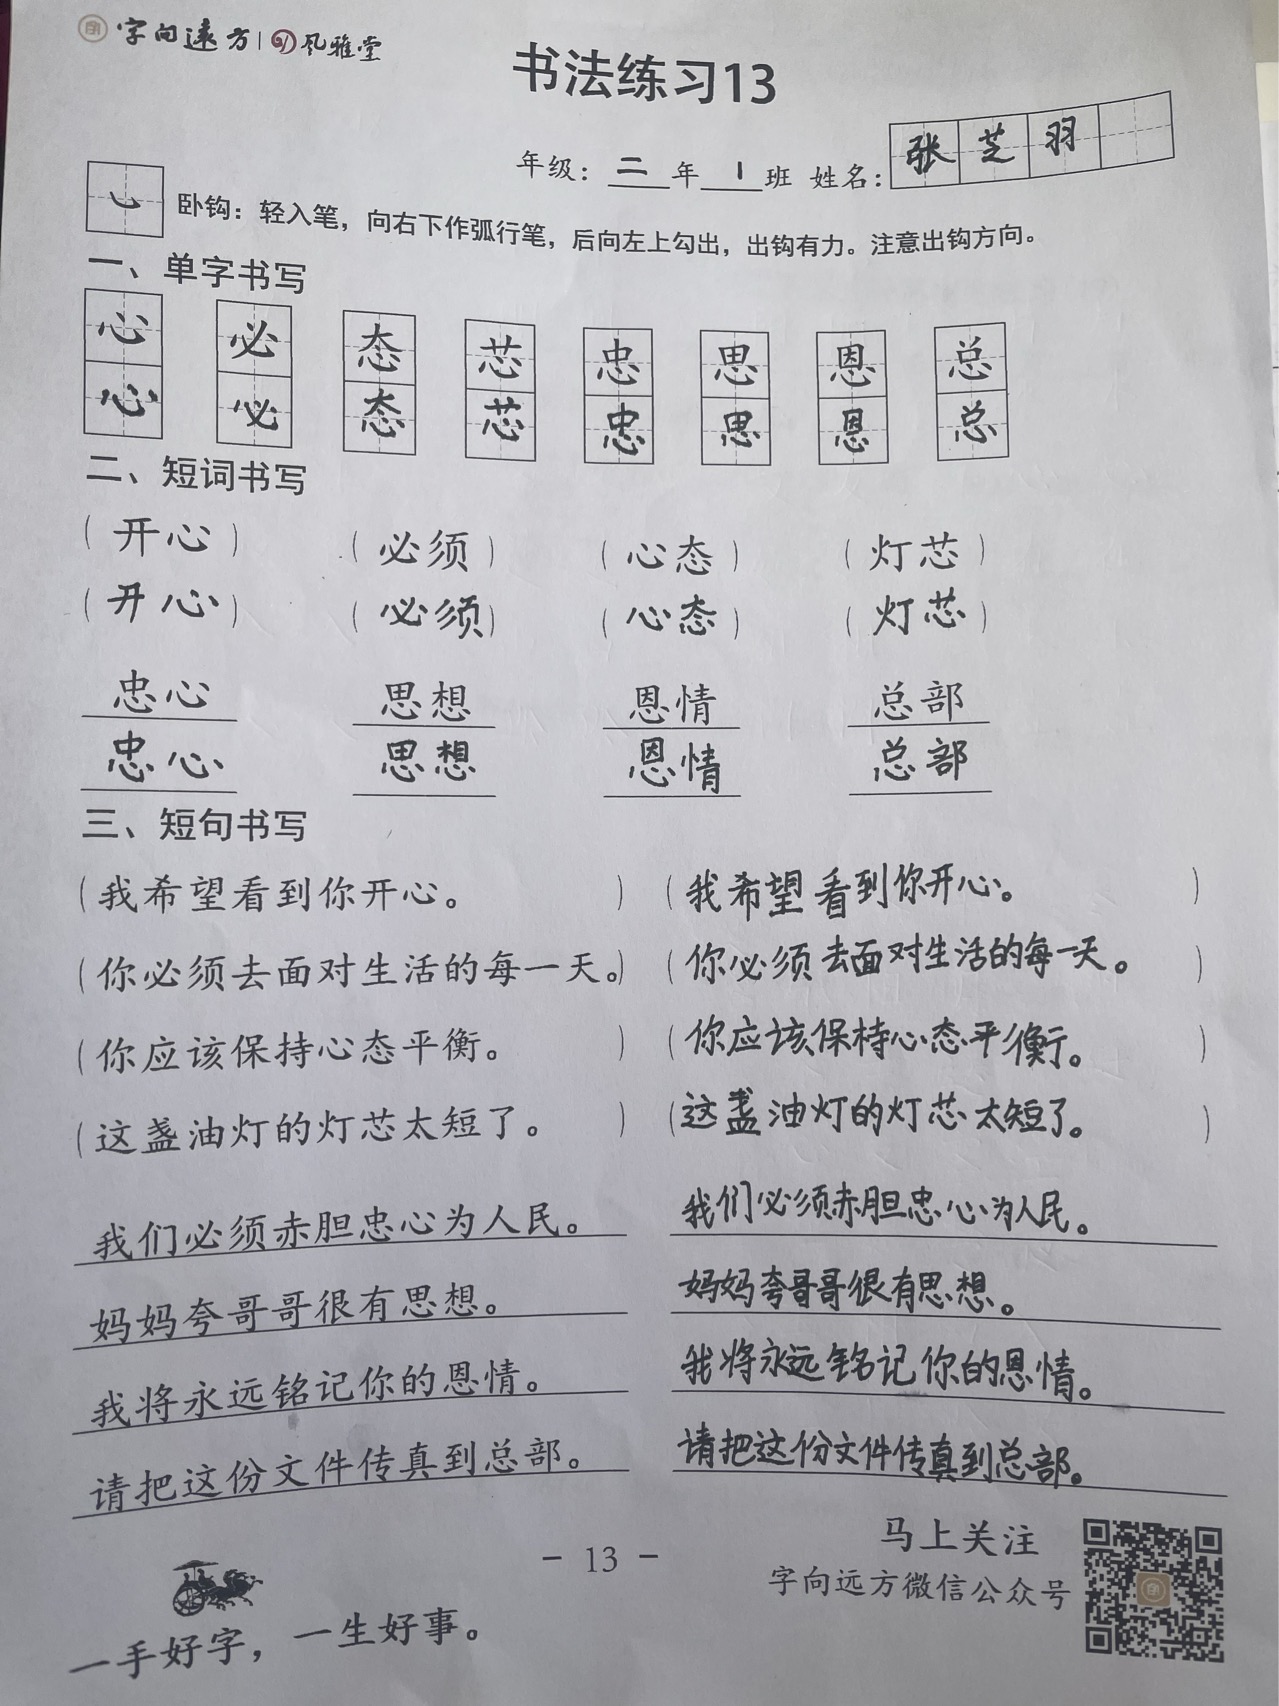 字向远方 | 风雅堂
书法练习13
年级：二年1班 姓名：张芝羽
卧钩：轻入笔，向右下作弧行笔，后向左上勾出，出钩有力。注意出钩方向。
一、单字书写
心 必 态 芯 忠 思 恩 总
心 必 态 芯 忠 思 恩 总
二、短词书写
（开心）（必须）（心态）（灯芯）
（开心）（必须）（心态）（灯芯）
忠心 思想 恩情 总部
忠心 思想 恩情 总部
三、短句书写
（我希望看到你开心。）（我希望看到你开心。）
（你必须去面对生活的每一天。）（你必须去面对生活的每一天。）
（你应该保持心态平衡。）（你应该保持心态平衡。）
（这盏油灯的灯芯太短了。）（这盏油灯的灯芯太短了。）
我们必须赤胆忠心为人民。 我们必须赤胆忠心为人民。
妈妈夸哥哥很有思想。 妈妈夸哥哥很有思想。
我将永远铭记你的恩情。 我将永远铭记你的恩情。
请把这份文件传真到总部。 请把这份文件传真到总部。
- 13 -
马上关注
字向远方微信公众号
一手好字，一生好事。